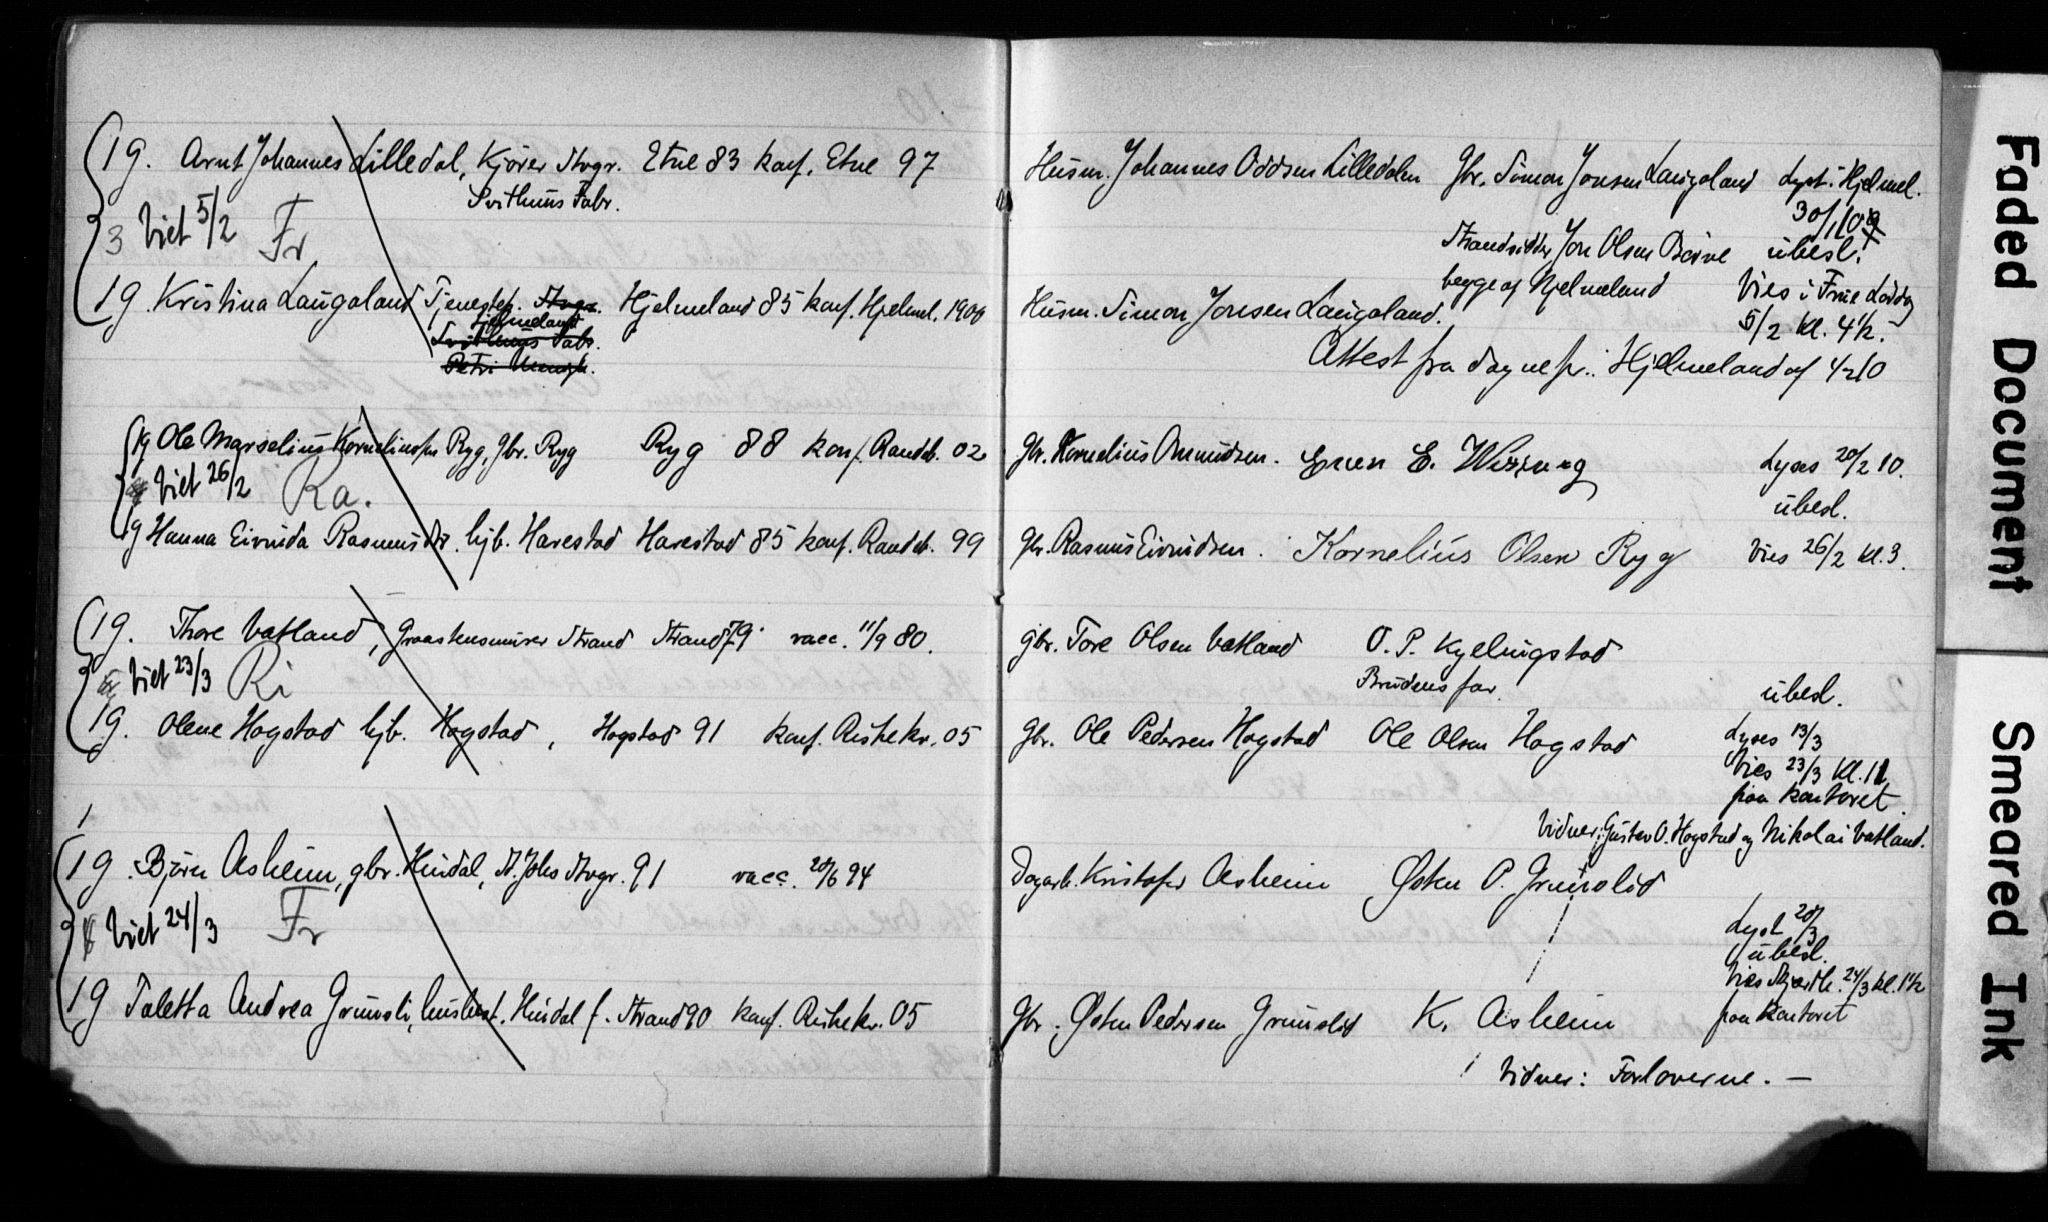 19. Arnt Johannes Lilledal, Kjører Stvgr. Etne 83 konf. Etne 97
Svithuns Fabr.
3 Viet 5/2 Fr
19. Kristina Laugaland Tjenestep. Stvgr. Hjelmeland 85 konf. Hjelmel. 1900
Hjelmeland
Svithuns Fabr.
Petri
19 Ole Marselius Korneliussen Ryg, gbr. Ryg Ryg 88 konf. Randeb. 02
Viet 26/2 Ra.
19 Hanna Eivinda Rasmusdtr. hjb. Harestad Harestad 85 konf. Randeb. 99
19. Thore Vatland, Graastensmurer Strand Strand 79 vacc. 11/9 80.
Viet 23/3 Ri
19. Olene Hogstad hjb. Hogstad, Hogstad 91 konf. Riskekv. 05
1
19. Bjørn Asheim, gbr. Hindal, St. Johs Stvgr. 91 vacc. 20/6 94
Viet 24/3 Fr
19 Taletta Andrea Grunsli, Hindal f. Strand 90 konf. Riskekv. 05
Husm. Johannes Oddsen Lilledalen Gbr. Simon Jonsen Laugaland Lyst i Hjelmel.
30/1 10
Strandsidder Jon Olsen Børve ubesl.
begge af Hjelmeland Vies i Frue Lørdag
Husm. Simon Jonsen Laugaland. 5/2 kl. 4½.
Attest fra sognepr. i Hjelmeland af 4-2 10
Gbr. Kornelius Asmundsen. E. Lyses 20/2 10.
ubesl.
Gbr. Rasmus Eivindsen. Kornelius Olsen Ryg Vies 26/2 kl. 3.
gbr. Tore Olsen Vatland O. P. Kyelingstad
Brudens far. ubesl.
Gbr. Ole Pedersen Hogstad Ole Olsen Hogstad Lyses 13/3
Vies 23/3 kl. 11
paa kontoret.
Vidner: Gustav O. Hogstad og Nikolai Vatland.
Dagarb. Kristofer Asheim Østen P. Grunslid
Lyst 20/3
ubesl.
Vies 24/3 kl. 1½
Gbr. Østen Pedersen Grunslid K. Asheim paa kontoret
Vidner: Forloverne. —
Faded Document
Smeared Ink